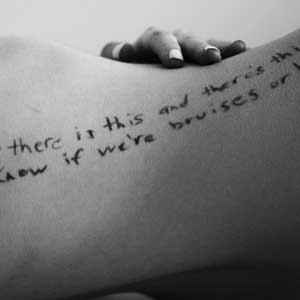 there is this and there's th
know if we're bruises or